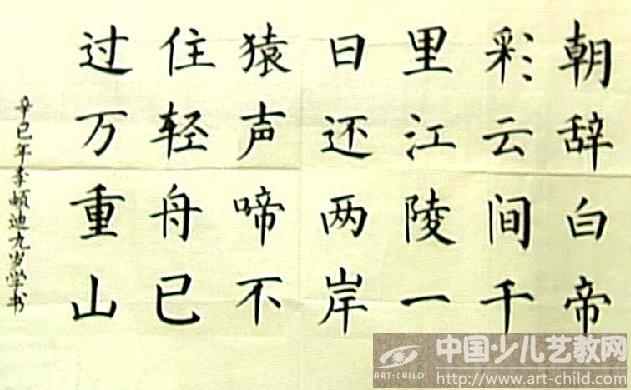 朝辞白帝
彩云间千
里江陵一
日还两岸
猿声啼不
住轻舟已
过万重山
辛巳年李迪九岁学书
ART-CHILD
中国少儿艺教网
http://www.art-child.com